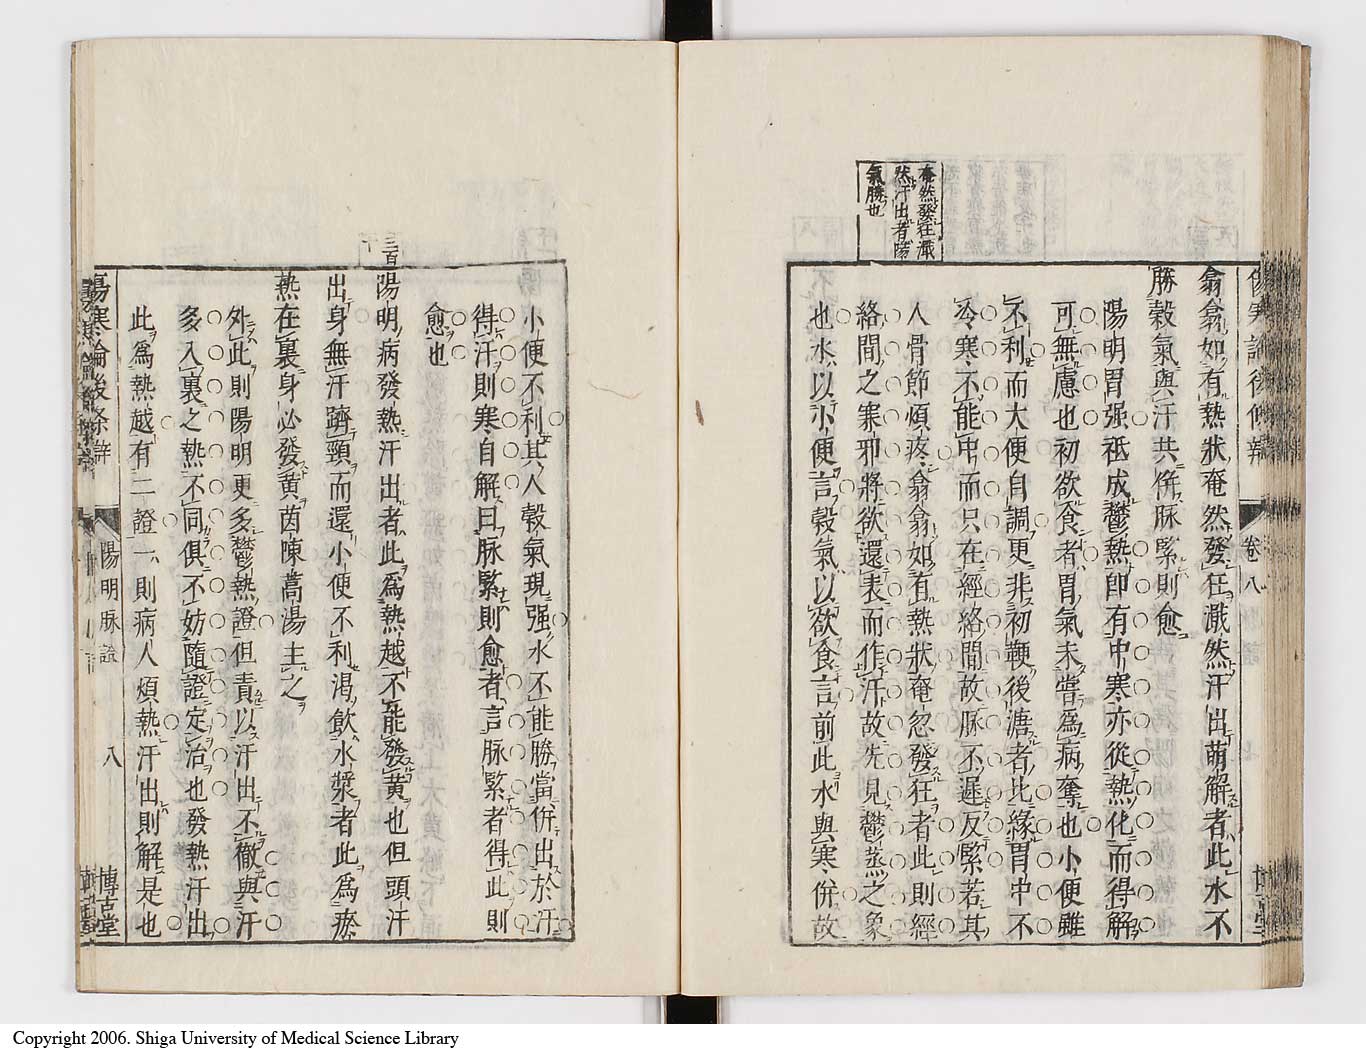 傷寒論後條辨
卷八
翕翕如有熱狀奄然發狂濈然汗出而解者此水不
勝穀氣與汗共併脉緊則愈
陽明胃强祗成鬱熱卽有中寒亦從熱化而得解
可無慮也初欲食者胃氣未嘗爲病奪也小便雖
不利而大便自調更非初鞕後溏者比緣胃中不
冷寒不能中而只在經絡間故脉不遲反緊若其
人骨節煩疼翕翕如有熱狀奄忽發狂者此則經
絡間之寒邪將欲還表而作汗故先見鬱蒸之象
也水以小便言穀氣以欲食言前此水與寒併故
奄然發狂濈
然汗出者陽
氣勝也
小便不利其人穀氣現强水不能勝當併出於汗
得汗則寒自解曰脉緊則愈者言脉緊者得此則
愈也
三百
陽明病發熱汗出者此爲熱越不能發黃也但頭汗
出身無汗躋頸而還小便不利渴飲水漿者此爲瘀
熱在裏身必發黃茵陳蒿湯主之
外此則陽明更多鬱熱證但責以汗出不徹與汗
多入裏之熱不同俱不妨隨證定治也發熱汗出
此爲熱越有二證一則病人煩熱汗出則解是也
傷寒論後條辨
陽明脉證
八
博古堂
Copyright 2006. Shiga University of Medical Science Library